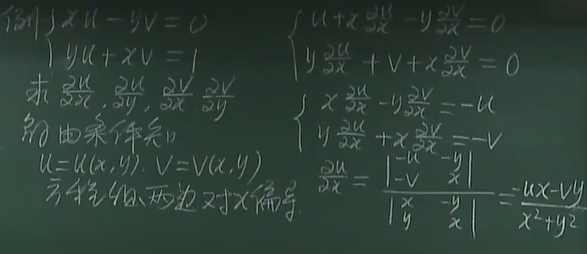 例 { xu - yv = 0
yu + xv = 1
求 ∂u/∂x, ∂u/∂y, ∂v/∂x, ∂v/∂y
解 由条件知
u = u(x, y). v = v(x, y)
方程组两边对x偏导
{ u + x ∂u/∂x - y ∂v/∂x = 0
y ∂u/∂x + v + x ∂v/∂x = 0
{ x ∂u/∂x - y ∂v/∂x = -u
y ∂u/∂x + x ∂v/∂x = -v
∂u/∂x = |-u -y; -v x| / |x -y; y x| = (-ux - vy)/(x² + y²)